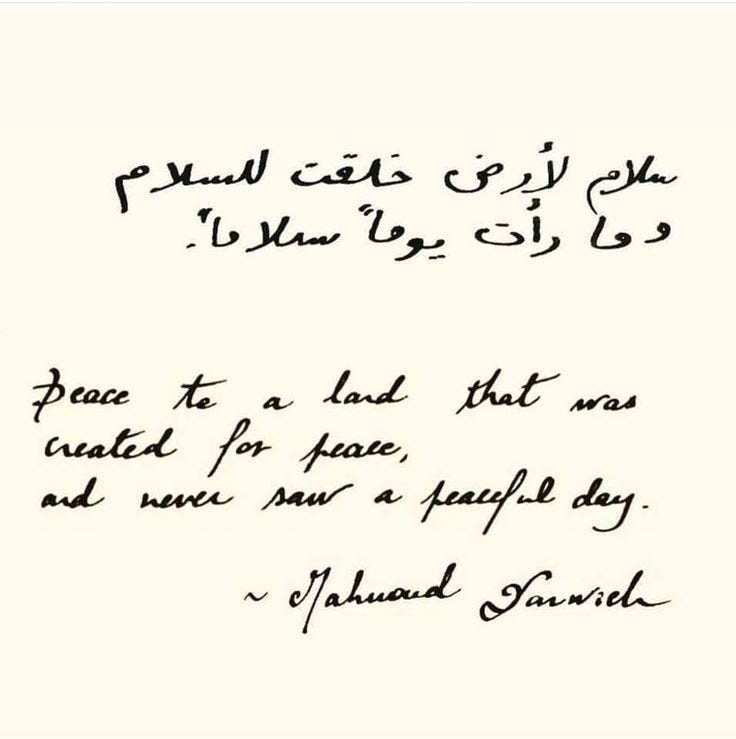 سلام لأرض خلقت للسلام
وما رأت يوماً سلاماً.
Peace to a land that was
created for peace,
and never saw a peaceful day.
~ Mahmoud Darwish